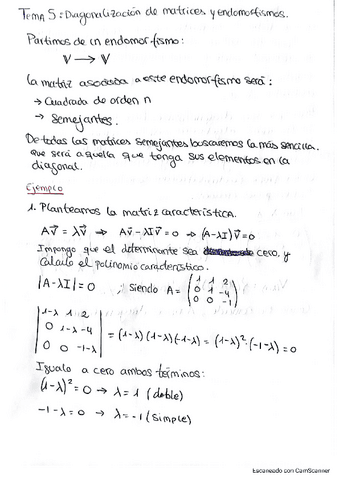 Tema 5: Diagonalización de matrices y endomorfismos.
Partimos de un endomorfismo:
V → V
La matriz asociada a este endomorfismo será:
→ Cuadrada de orden n
→ Semejantes.
De todas las matrices semejantes buscaremos la más sencilla.
que será aquella que tenga sus elementos en la
diagonal.
Ejemplo
1. Planteamos la matriz característica.
Av⃗ = λv⃗ → Av⃗ - λIv⃗ = 0 → (A-λI)v⃗ = 0
Impongo que el determinante sea cero, y
calculo el polinomio característico.
|A-λI| = 0 ; siendo A = (1 1 2
0 1 -4
0 0 -1)
|1-λ 1 2
0 1-λ -4
0 0 -1-λ| = (1-λ)(1-λ)(-1-λ) = (1-λ)²·(-1-λ) = 0
Igualo a cero ambos términos:
(1-λ)² = 0 → λ = 1 (doble)
-1-λ = 0 → λ = -1 (simple)
Escaneado con CamScanner